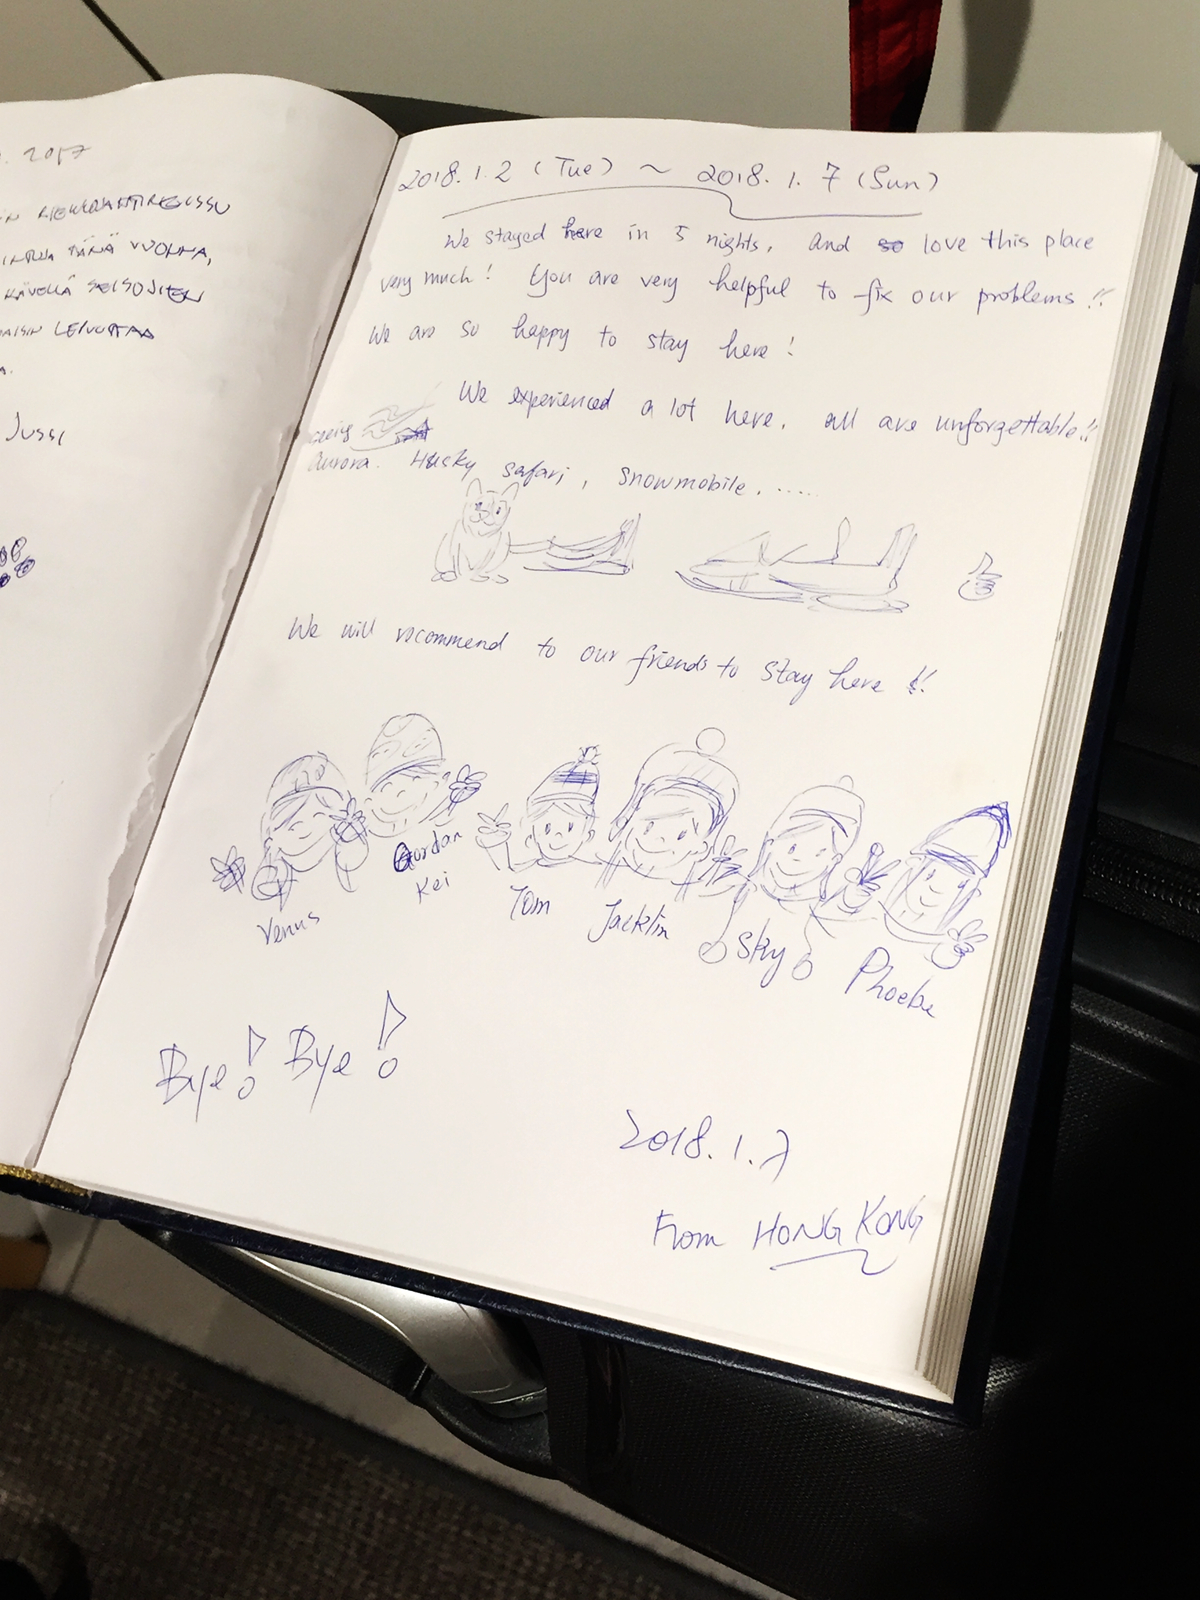 2017
TÄNÄ VUONNA,
KÄVELLÄ SEISOJIEN
JUSSI
2018.1.2 (Tue) ~ 2018.1.7 (Sun)
We stayed here in 5 nights, and love this place
very much! You are very helpful to fix our problems!!
We are so happy to stay here!
We experienced a lot here, all are unforgettable!!
seeing
aurora. Husky safari, snowmobile.....
We will recommend to our friends to stay here!!
Venus
Gordan
Kei
Tom
Jacklin
Sky
Phoebe
Bye! Bye!
2018.1.7
From HONG KONG